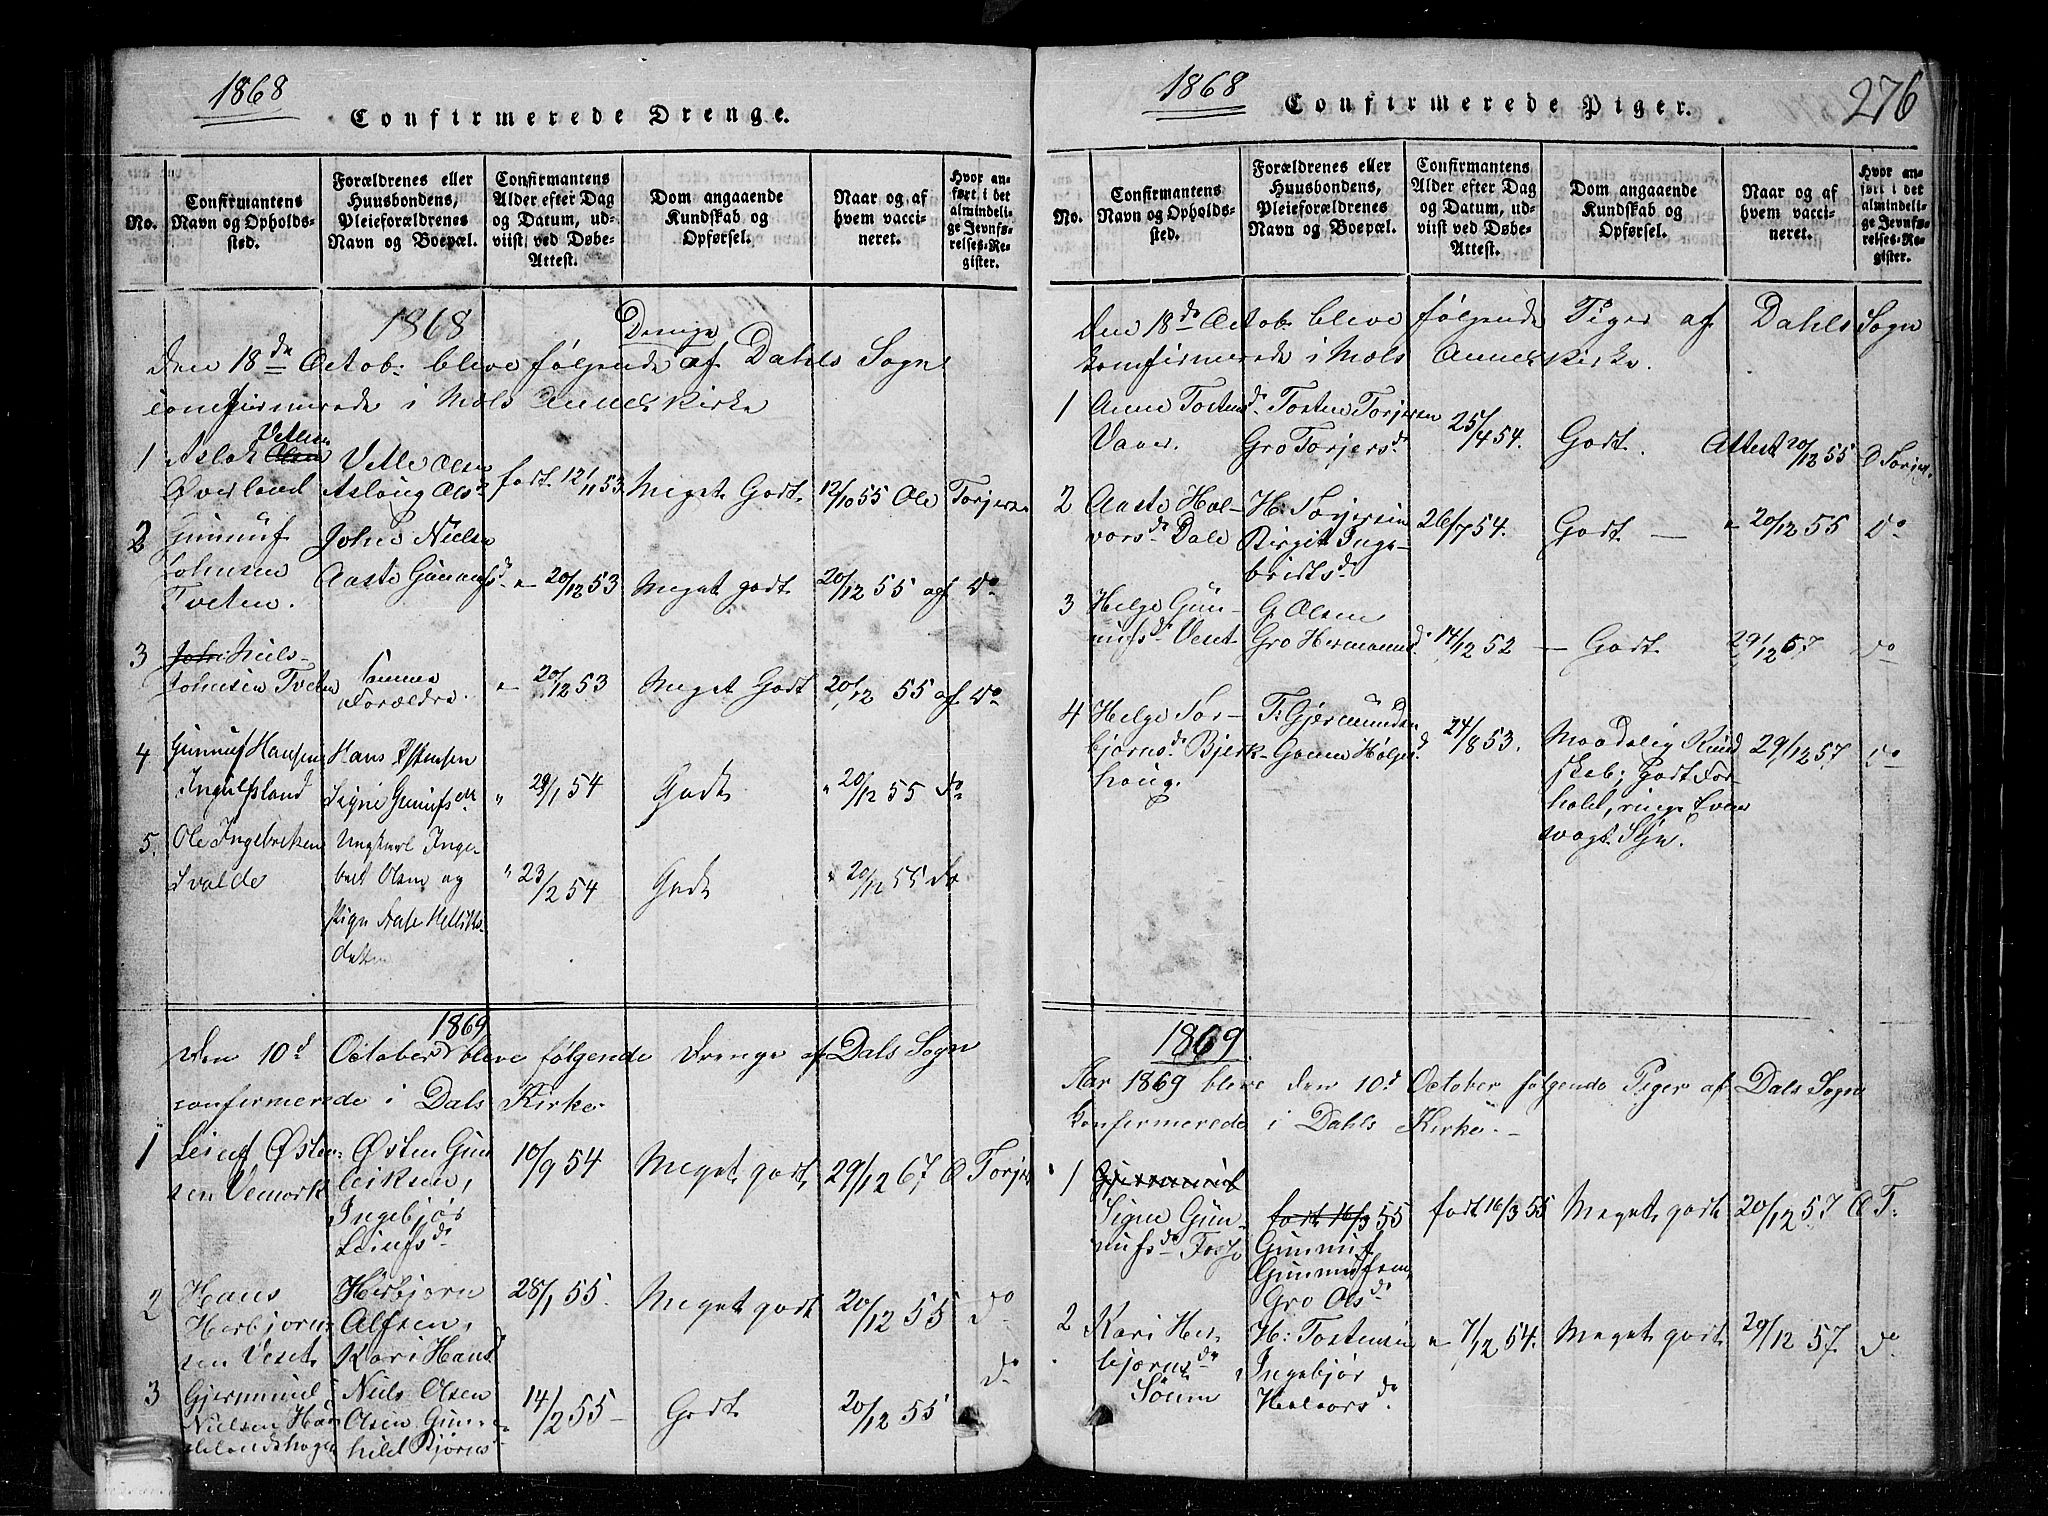 1868
Confirmerede Drenge.
No.
Confirmantens
Navn og Opholds-
sted.
Forældrenes eller
Huusbondens,
Pleieforældrenes
Navn og Boepæl.
Confirmantens
Alder efter Dag
og Datum, ud-
viist ved Døbe-
Attest.
Dom angaaende
Kundskab og
Opførsel.
Naar og af
hvem vacci-
neret.
Hvor an-
ført i det
almindeli-
ge Jevnfø-
relses-Re-
gister.
1868
Drenge
Den 18de Octob: bleve følgende af Dahls Sogn
confirmerede i Mæls Annex Kirke
1
Aslak Olsen Vetlesen
Øverland
Vetle Olsen
Aslaug Olsd
født 12/11 53
Meget Godt
12/10 55 Ole Torjersen
2
Gunnuf
Johnsen
Tveten.
John Nielsen
Aaste Gunnufsdr
" 20/12 53
Meget godt
20/12 55 af Do
3
John Niels
Johnsen Tveten
Samme
Forældre.
" 20/12 53
Meget Godt
20/12 55 af Do
4
Gunnuf Hansen
Ingulfsland
Hans Østensen
Signe Gunufsdtr
" 29/1 54
Godt
" 20/12 55 Do
5.
Ole Ingebretsen
Ungkarl Inge-
bret Olsen og
Pige Aase
datter
" 23/2 54
Godt
" 20/12 55 Do
1869
Den 10d October bleve følgende Drenge af Dals Sogn
confermerede i Dals Kirke
1
Leiuf Østen-
sen Vemork
Østen Gun-
leiksen,
Ingebjør
Leiufsdr
10/9 54
Meget godt
29/12 67 O Torjers
2
Hans
Herbjørn-
sen Veset
Herbjørn
Alfsen,
Kari Hansd
28/1 55.
Meget godt
20/12 55
Do
3
Gjermund
Nielsen
Niels Olsen
Olsen Gun-
hild Bjørnsd
14/2 55
Godt
20/12 55
Do
1868
Confirmerede Piger.
276
No.
Confirmantens
Navn og Opholds-
sted.
Forældrenes eller
Huusbondens,
Pleieforældrenes
Navn og Boepæl.
Confirmantens
Alder efter Dag
og Datum, ud-
viist ved Døbe-
Attest.
Dom angaaende
Kundskab og
Opførsel.
Naar og af
hvem vacci-
neret.
Hvor an-
ført i det
almindelig-
ge Jevnfø-
relses-Re-
gister.
Den 18de Octob: bleve følgende Piger af Dahls Sogn
konfirmerede i Mæls Annex Kirke.
1
Anne Tostensd
Vaaer.
Tosten Torjersen
Gro Torjersdr
25/4 54.
Godt.
Attest 20/12 55 O Torjers.
2
Aaste Hal-
vorsdr Dale
H: Torjersen
Birgit Inge-
bridtsdr
26/7 54.
Godt
" 20/12 55 Do
3
Helge Gun-
nufsdr Veset
G Olsen
Gro Hermannsd
14/12 52
Godt
29/12 67
Do
4
Helge Tor-
bjørnsdr Bjerk-
houg.
T: Gjermundsen
24/8 53.
Maadelig Kund
skab; godt For-
hold,
Syn.
29/12 57.
Do
1869
Aar 1869 bleve den 10d October følgende Piger af Dals Sogn
konfermerede i Dahls Kirke.
1
Gjermund
Signe Gun-
nufsdr
født 16/3 55
Gunnuf
Gunnufsen,
Gro Olsdr
født 16/3 55
Meget godt
20/12 57 O T.
2
Kari Her-
bjørnsdr
H: Tostensen
Ingebjør
Halvorsdr
" 7/12 54.
Meget godt
29/12 57.
Do